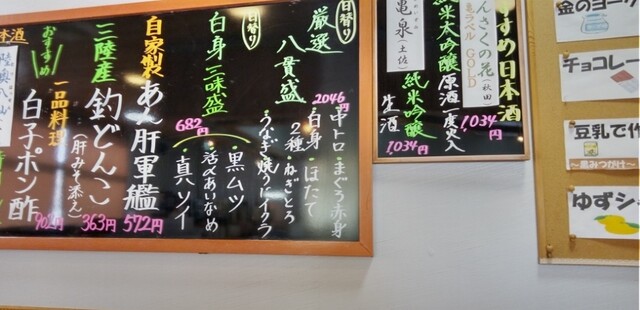 日替り
厳選
八貫盛
2046円
中トロ・まぐろ赤身
・白身・ほたて
2種・ねぎとろ
・うなぎ焼うに イクラ
日替り
白身三味盛
682円
・黒ムツ
・活〆あいなめ
・真ソイ
自家製
あん肝軍艦
572円
三陸産
釣どんこ
(肝みそ添え)
363円
おすすめ
一品料理
白子ポン酢
902円
本酒
すめ日本酒
んさくの花(秋田)
亀ラベル GOLD
純米大吟醸原酒一度火入
1,034円
亀泉(土佐)
純米吟醸
生酒
1,034円
金のヨーグ
チョコレー
豆乳で作
~黒みつがけ~
ゆずシ